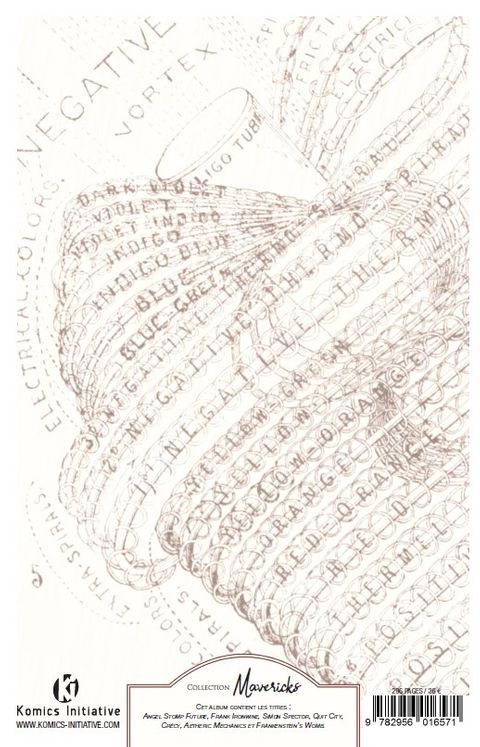 NEGATIVE
VORTEX
ELECTRIC
ELECTRICAL COLORS.
DARK VIOLET
VIOLET
VIOLET INDIGO
INDIGO
INDIGO BLUE
BLUE
BLUE-GREEN
THERMO-SPIRAL
3D NEGATIVE THERMO-SPIRA
2D NEGATIVE THERMO-
1ST NEGATIVE THERMO-
YELLOW-GREEN
YELLOW
YELLOW-ORANGE
ORANGE
RED-ORANGE
RED
THERMEL
POSITI
POSI
EXTRA SPIRALS
COLORS
PIRALS
5
Komics Initiative
WWW.KOMICS-INITIATIVE.COM
COLLECTION Mavericks
CET ALBUM CONTIENT LES TITRES :
ANGEL STOMP FUTURE, FRANK IRONWINE, SIMON SPECTOR, QUIT CITY,
CRÉCY, AETHERIC MECHANICS ET FRANKENSTEIN'S WOMB.
296 PAGES / 26 €
9 782956 016571